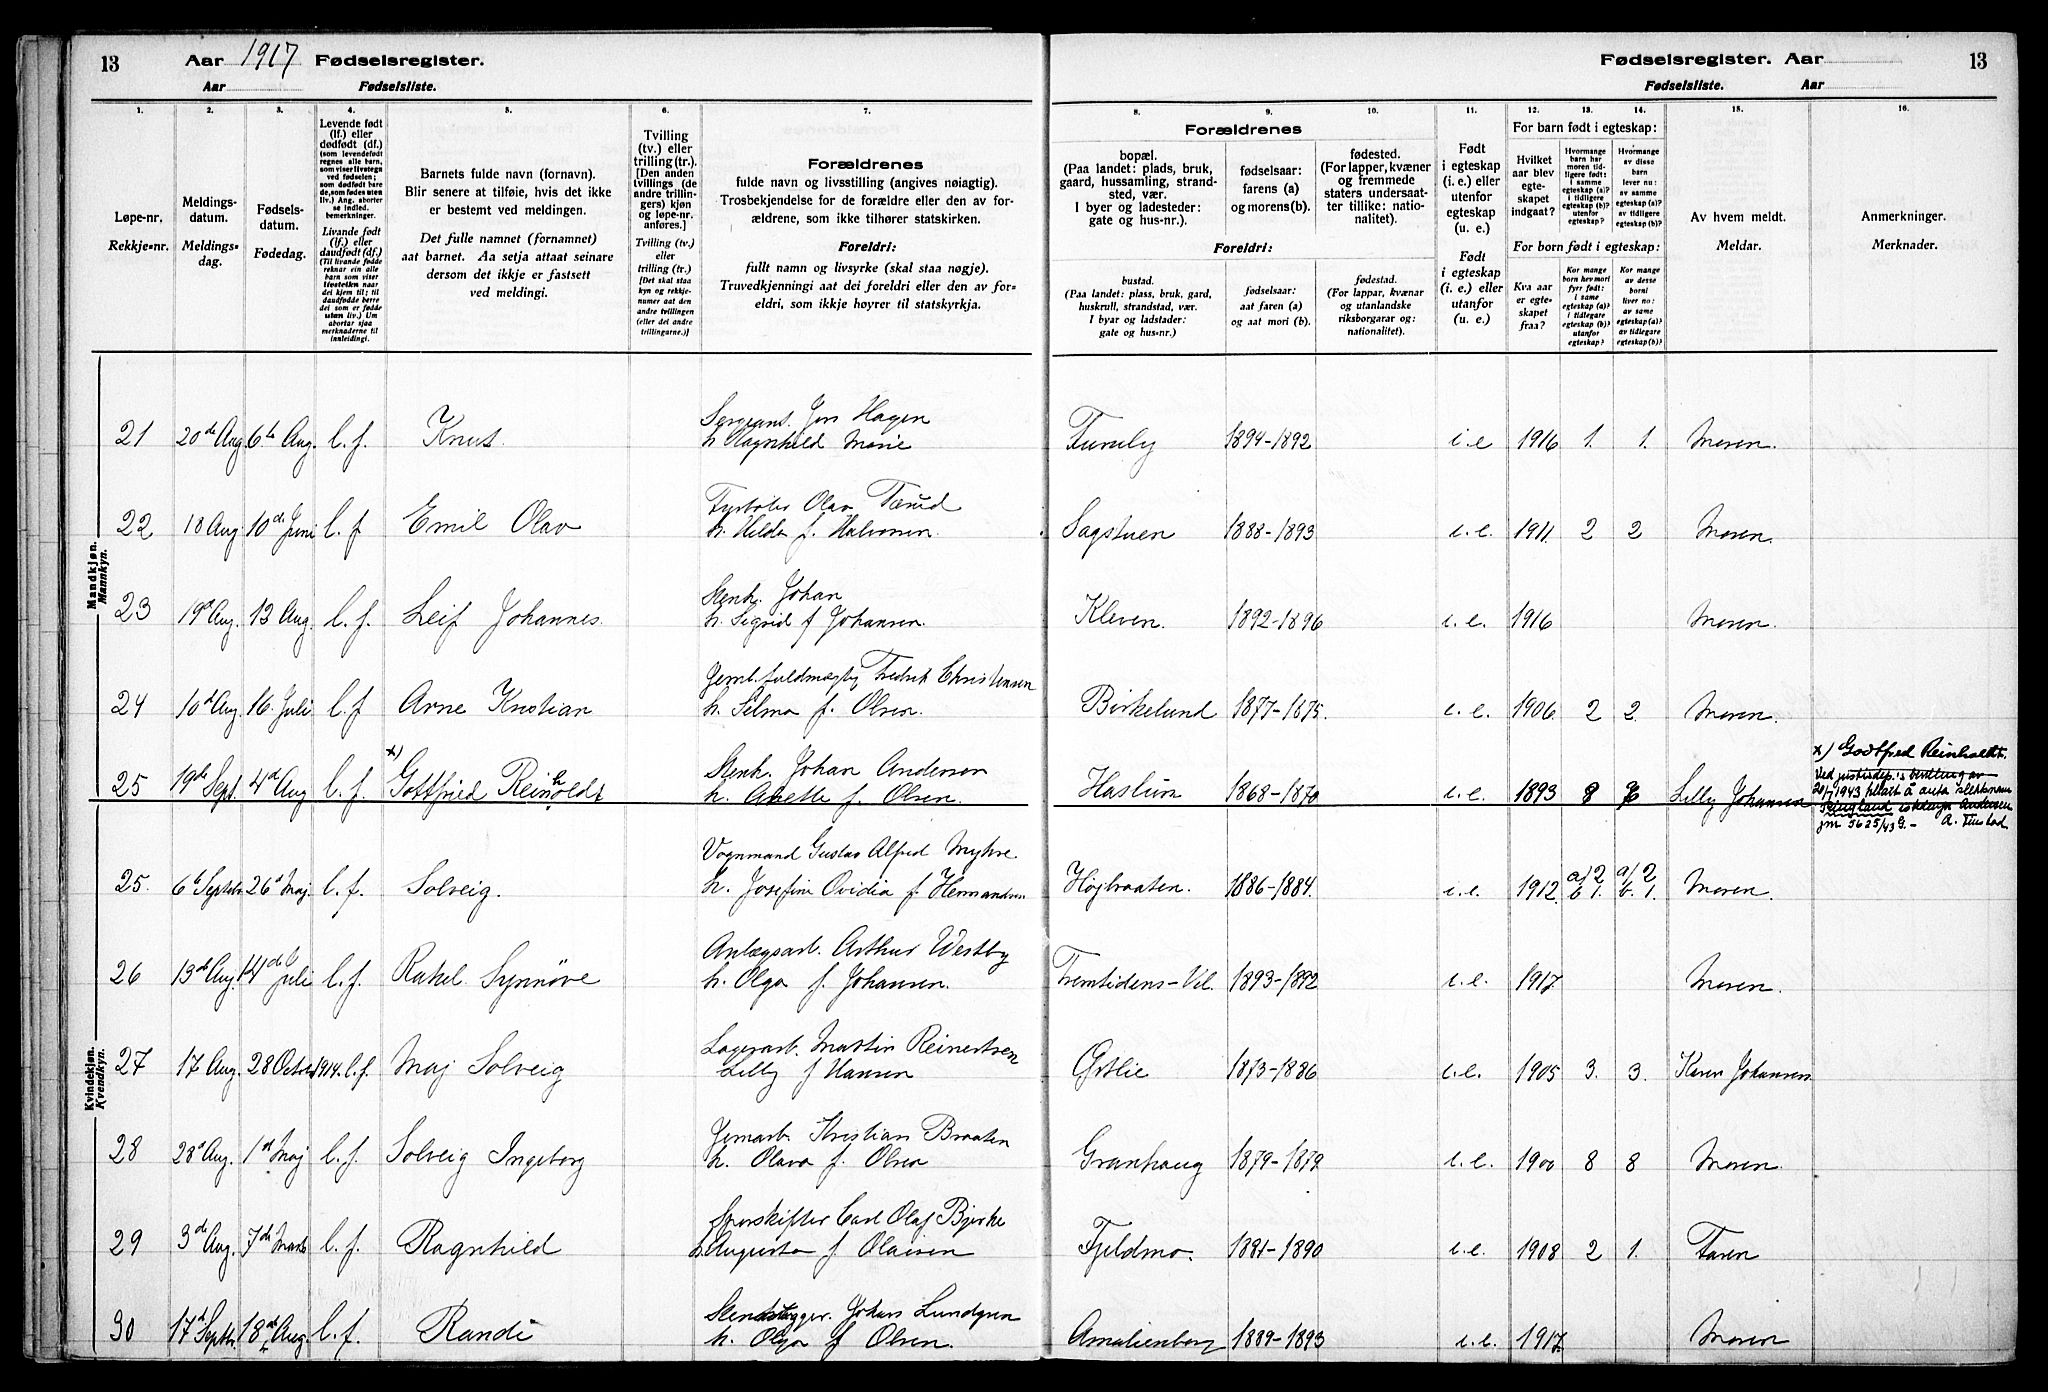 13
Aar 1917 Fødselsregister.
Aar Fødselsliste.
Fødselsregister. Aar
Fødselsliste. Aar
13
1. 2. 3. 4. 5. 6. 7. 8. 9. 10. 11. 12. 13. 14. 15. 16.
Løpe-nr.
Rekkje-nr.
Meldings-
datum.
Meldings-
dag.
Fødsels-
datum.
Fødedag.
Levende født
(lf.) eller
dødfødt (df.)
(som levendefødt
regnes alle barn,
som viser livstegn
ved fødselen;
som dødfødt bare
de, som fødes uten
liv.) Ang. aborter
se indled.
bemerkninger.
Livande født
(lf.) eller
daudfødt (df.)
(Til livande fødde
reknar ein alle
barn som viser
livsteikn naar
dei kjem til; til
daudfødde berre
dei som er fødde
utan liv.) Um
abortar sjaa
merknaderne til
innleidingi.
Barnets fulde navn (fornavn).
Blir senere at tilføie, hvis det ikke
er bestemt ved meldingen.
Det fulle namnet (fornamnet)
aat barnet. Aa setja attaat seinare
dersom det ikkje er fastsett
ved meldingi.
Tvilling
(tv.) eller
trilling (tr.).
[Den anden
tvillings (de
andre trillin-
gers) kjøn
og løpe-nr.
anføres.]
Tvilling (tv.)
eller
trilling (tr.)
[Det skal staa
kyn og rekkje-
numer aat den
andre tvillingen
(eller dei andre
trillingarne.)]
Forældrenes
fulde navn og livsstilling (angives nøiagtig).
Trosbekjendelse for de forældre eller den av for-
ældrene, som ikke tilhører statskirken.
Foreldri:
fullt namn og livsyrke (skal staa nøgje).
Truvedkjenningi aat dei foreldri eller den av for-
eldri, som ikkje høyrer til statskyrkja.
Forældrenes
bopæl.
(Paa landet: plads, bruk,
gaard, hussamling, strand-
sted, vær.
I byer og ladesteder:
gate og hus-nr.).
fødselsaar:
farens (a)
og morens (b).
fødested.
(For lapper, kvæner
og fremmede
staters undersaat-
ter tillike: natio-
nalitet).
Foreldri:
bustad.
(Paa landet: plass, bruk, gard,
huskrull, strandstad, vær.
I byar og ladstader:
gate og hus-nr.)
fødselsaar:
aat faren (a)
og aat mori (b).
fødestad.
(For lappar, kvænar
og utanlandske
riksborgarar og:
nationalitet).
Født
i egteskap
(i. e.) eller
utenfor
egteskap
(u. e.)
Født
i egteskap
(i. e.) eller
utanfor
(u. e.)
For barn født i egteskap:
Hvilket
aar blev
egte-
skapet
indgaat?
Hvormange
barn har
moren tid-
ligere født:
I samme
egteskap (a)?
i tidligere
egteskap (b)?
utenfor
egteskap?
Hvormange
av disse
barn
lever nu:
av samme
egteskap (a)?
av tidligere
egteskap (b)?
For born født i egteskap:
Kva aar
er egte-
skapet
fraa?
Kor mange
born hev mori
fyrr født:
I same
egteskap (a)?
i tidlegare
egteskap (b)?
utanfor
egteskap?
Kor mange
av desse
borni
liver no:
av same
egteskap (a)?
av tidlegare
egteskap (b)?
Av hvem meldt.
Meldar.
Anmerkninger.
Merknader.
Mandkjøn.
Mannkyn.
Sergeant. Jens Hagen
21 20de Aug. 6te Aug. l. f. Knut h. Ragnhild Marie Furuly 1894-1892 i. e 1916 1. 1. Moren.
Olav Tærud
22 18 Aug 10de Juni l. f Emil Olav h. Hilda f. Halvorsen. Sagstuen 1888-1893 i. e. 1911. 2 2 Moren.
Stenh. Johan
23 19d Aug. 13 Aug. l. f. Leif Johannes. h. Sigrid f Johansen. Kleven. 1892-1896 i. e. 1916 Moren.
Jernb. fuldmægtig Fredrik Christensen
24 10d Aug. 16. Juli l. f Arne Kristian h. Selma f. Olsen. Birkelund 1877-1875. i. e. 1906. 2 2. Moren.
x) Stenh. Johan Andersen
25 19de Sept. 4d Aug l. f. Gottfried Reinholdt h. Anette f. Olsen. Haslum 1868-1870 i. e. 1893 8 Lilly Johansen
x) Godtfred Reinholdt.
Ved justisdep.'s bevilling av
20/7 1943 tillatt å anta slektsnavn
istedenfor Andersen
jm 5625/43 G.-
Kvindekjøn.
Kvendkyn.
Vognmand Gustav Alfred Myhre.
25. 6te Septbr. 26d Maj. l. f. Solveig. h. Josefine Ovidia f. Hermandsen Högbraaten. 1886-1884. i. e. 1912. a/2 b 1. a/2 b. 1. Moren.
Anlægsarb. Arthur Westby
26 13de Aug. 14de Juli l. f. Rakel Synnøve h. Olga f. Johansen. Fremtidens-Vel. 1893-1892 i. e. 1917. Moren.
Lagerarb. Martin Reinertsen
27 17 Aug. 28 Octbr. 1914. l. f. Maj Solveig Lilly f Hansen Østlie 1873-1886 i. e. 1905 3. 3. Karen Johansen
Jernarb. Kristian Braaten
28 28d Aug. 1st Maj l. f. Solveig Ingeborg h. Olava f. Olsen Granhaug 1879-1879 i. e. 1900 8 8 Moren.
Sporskifter Carl Olaf Bjerke
29 3de Aug. 7de Marts l. f. Ragnhild h. Augusta f Olaisen Fjeldmo. 1881-1890 i. e. 1908 2 1. Faren
Stenhugger. Johan Lundgren
30 17d Septbr. 18de Aug. l. f. Randi h. Olga f Olsen. Amalienborg 1889-1893 i. e. 1917. Moren